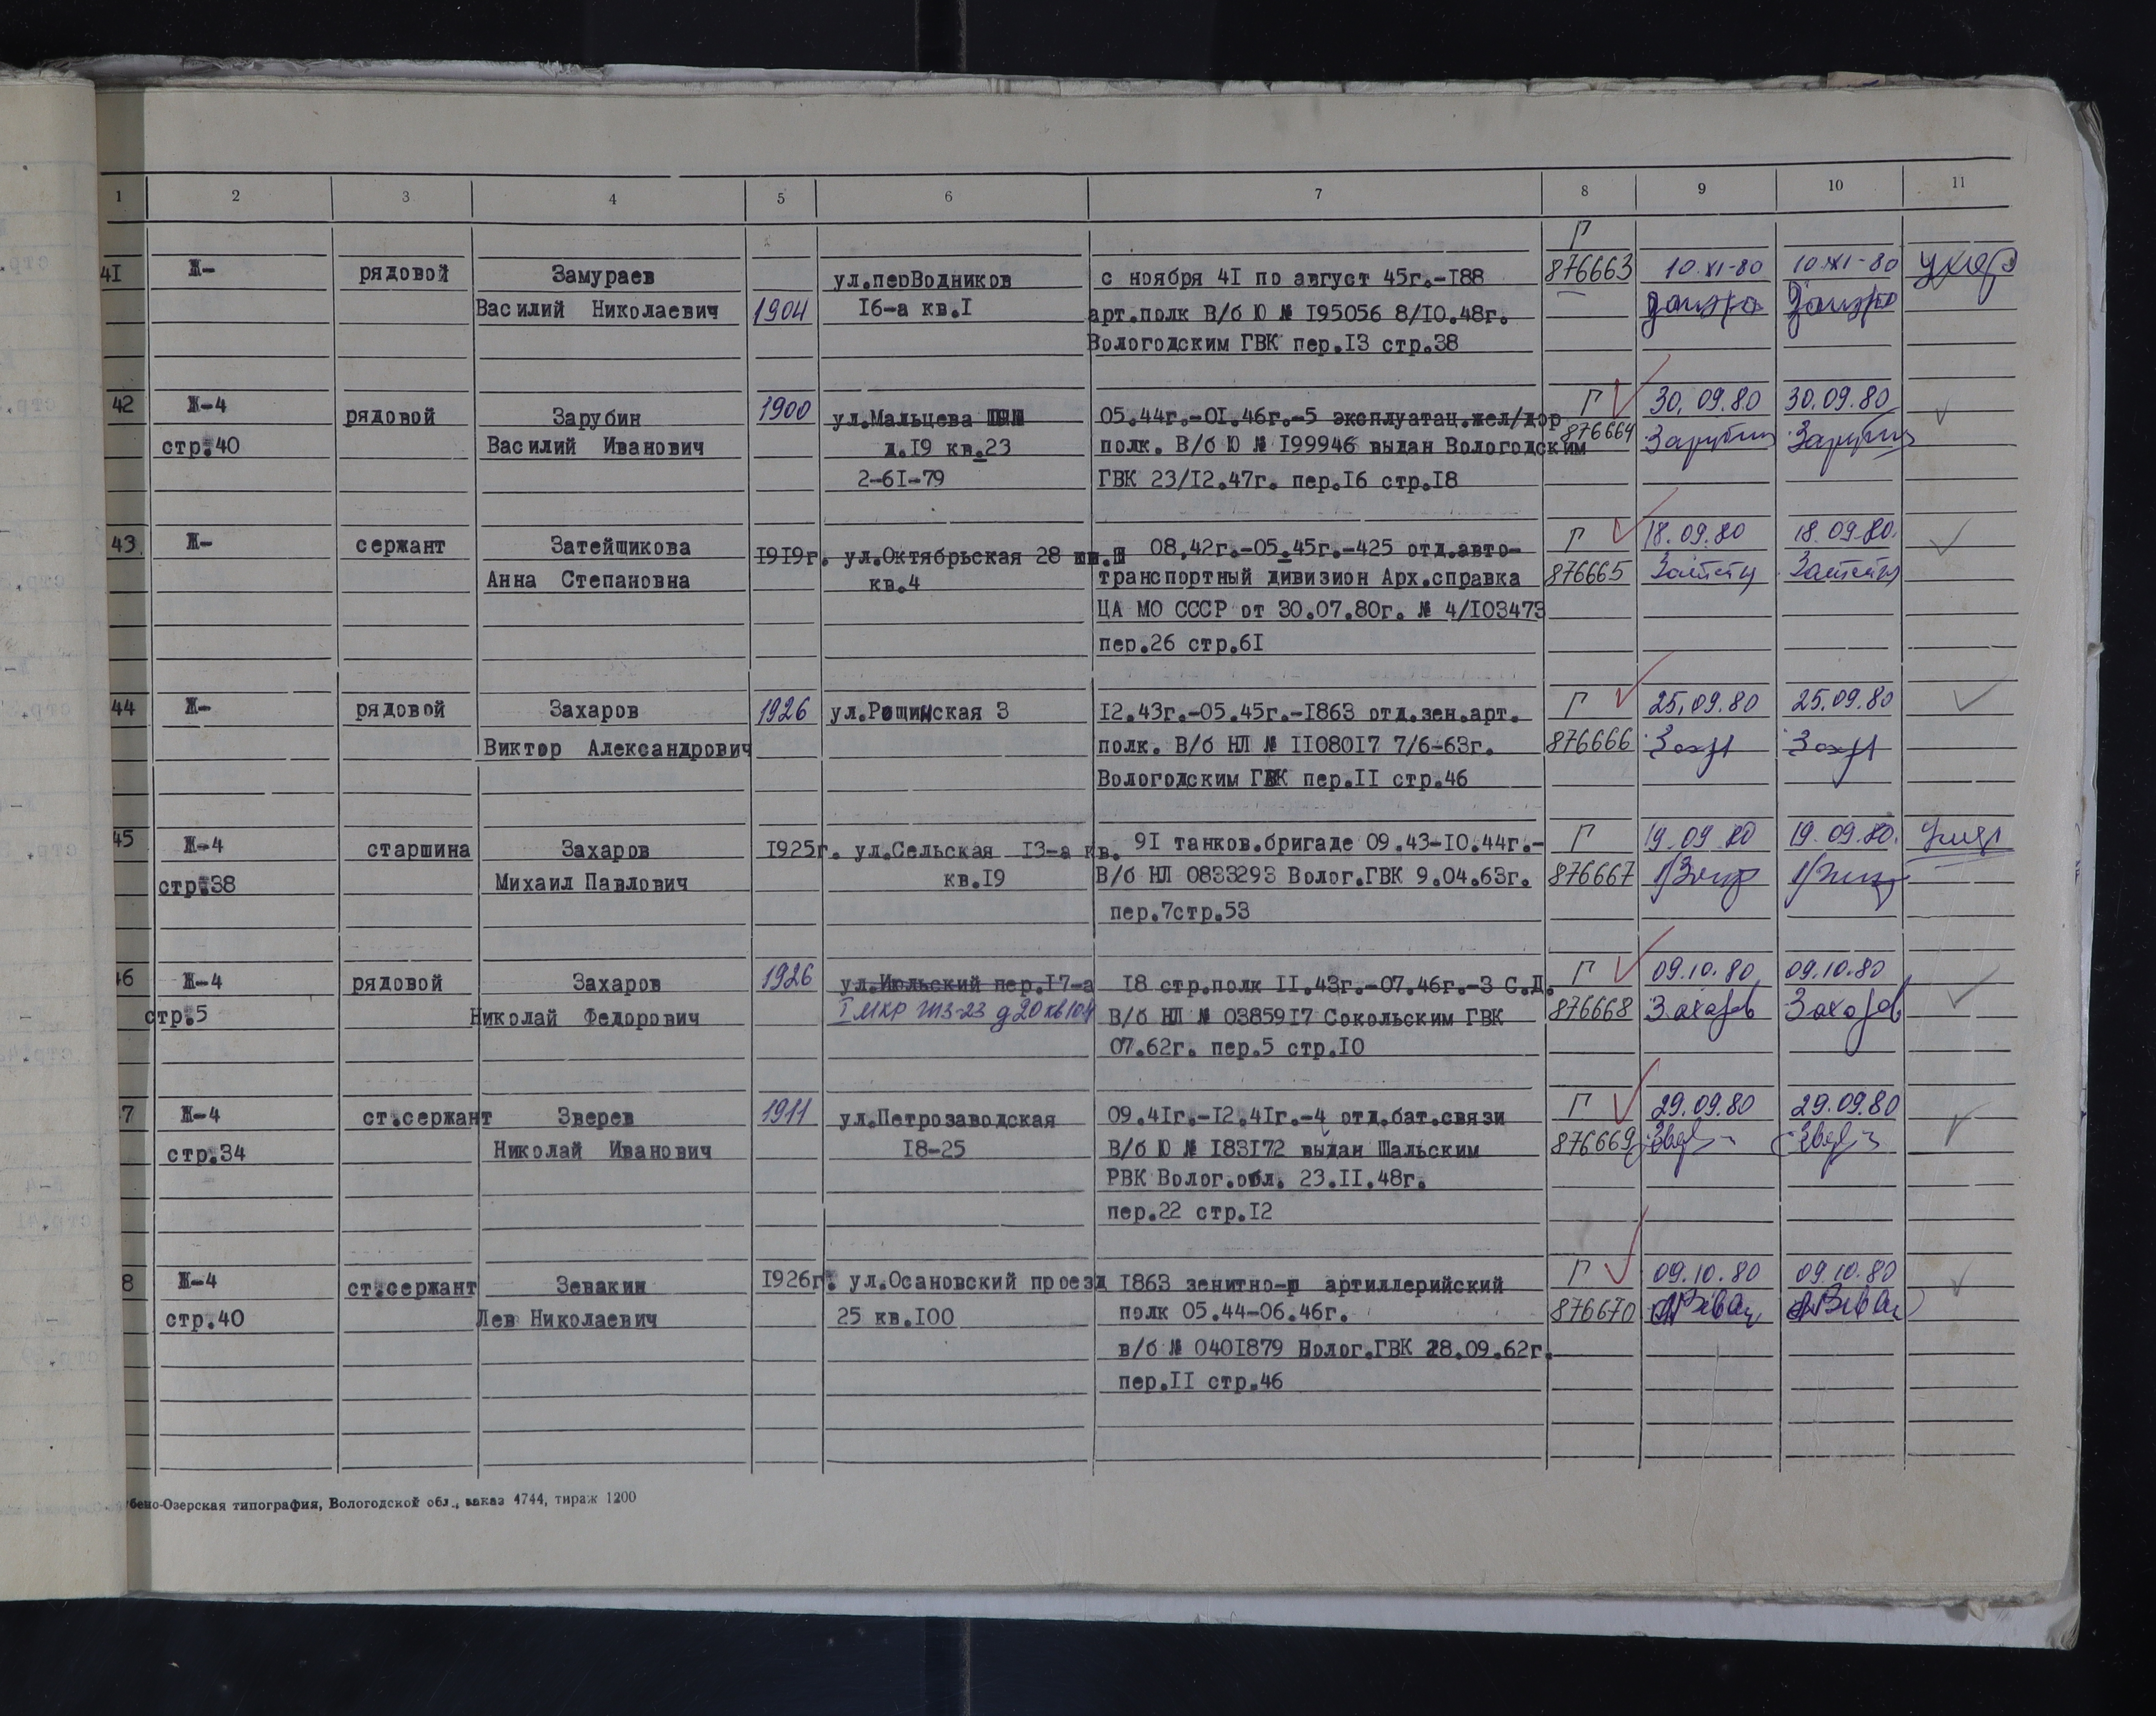 1 2 3 4 5 6 7 8 9 10 11
41 Ж- рядовой Замураев ул.перВодников с ноября 41 по август 45г.-188 Г 876663 10.XI-80 10.XI-80
Василий Николаевич 1904 16-а кв.1 арт.полк В/б Ю № 195056 8/10.48г.
Вологодским ГВК пер.13 стр.38
42 Ж-4 рядовой Зарубин 1900 ул.Мальцева 05.44г.-01.46г.-5 эксплуатац.жел/дор Г 30.09.80 30.09.80
стр.40 Василий Иванович д.19 кв.23 полк. В/б Ю № 199946 выдан Вологодским 876664 Зарубин Зарубин
2-61-79 ГВК 23/12.47г. пер.16 стр.18
43. Ж- сержант Затейщикова 1919г. ул.Октябрьская 28 08.42г.-05.45г.-425 отд.авто- Г 18.09.80 18.09.80.
Анна Степановна кв.4 транспортный дивизион Арх.справка 876665
ЦА МО СССР от 30.07.80г. № 4/103473
пер.26 стр.61
44 Ж- рядовой Захаров 1926 ул.Рощинская 3 12.43г.-05.45г.-1863 отд.зен.арт. Г 25.09.80 25.09.80
Виктор Александрович полк. В/б НЛ № 1108017 7/6-63г. 876666
Вологодским ГВК пер.11 стр.46
45 Ж-4 старшина Захаров 1925г. ул.Сельская 13-а кв. 91 танков.бригаде 09.43-10.44г.- Г 19.09.80 19.09.80.
стр.38 Михаил Павлович кв.19 В/б НЛ 0833293 Волог.ГВК 9.04.63г. 876667
пер.7стр.53
46 Ж-4 рядовой Захаров 1926 ул.Июльский пер.17-а 18 стр.полк 11.43г.-07.46г.-3 С.Д. Г 09.10.80 09.10.80
стр.5 Николай Федорович I мкр ГПЗ-23 д20 кв104 В/б НЛ № 0385917 Сокольским ГВК 876668 Захаров Захаров
07.62г. пер.5 стр.10
7 Ж-4 ст.сержант Зверев 1911 ул.Петрозаводская 09.41г.-12.41г.-4 отд.бат.связи Г 29.09.80 29.09.80
стр.34 Николай Иванович 18-25 В/б Ю № 183172 выдан Шальским 876669
РВК Волог.обл. 23.11.48г.
пер.22 стр.12
8 Ж-4 ст.сержант Зевакин 1926г. ул.Осановский проезд 1863 зенитно- артиллерийский Г 09.10.80 09.10.80
стр.40 Лев Николаевич 25 кв.100 полк 05.44-06.46г. 876670
в/б № 0401879 Волог.ГВК 28.09.62г.
пер.11 стр.46
бено-Озерская типография, Вологодской обл., заказ 4744, тираж 1200